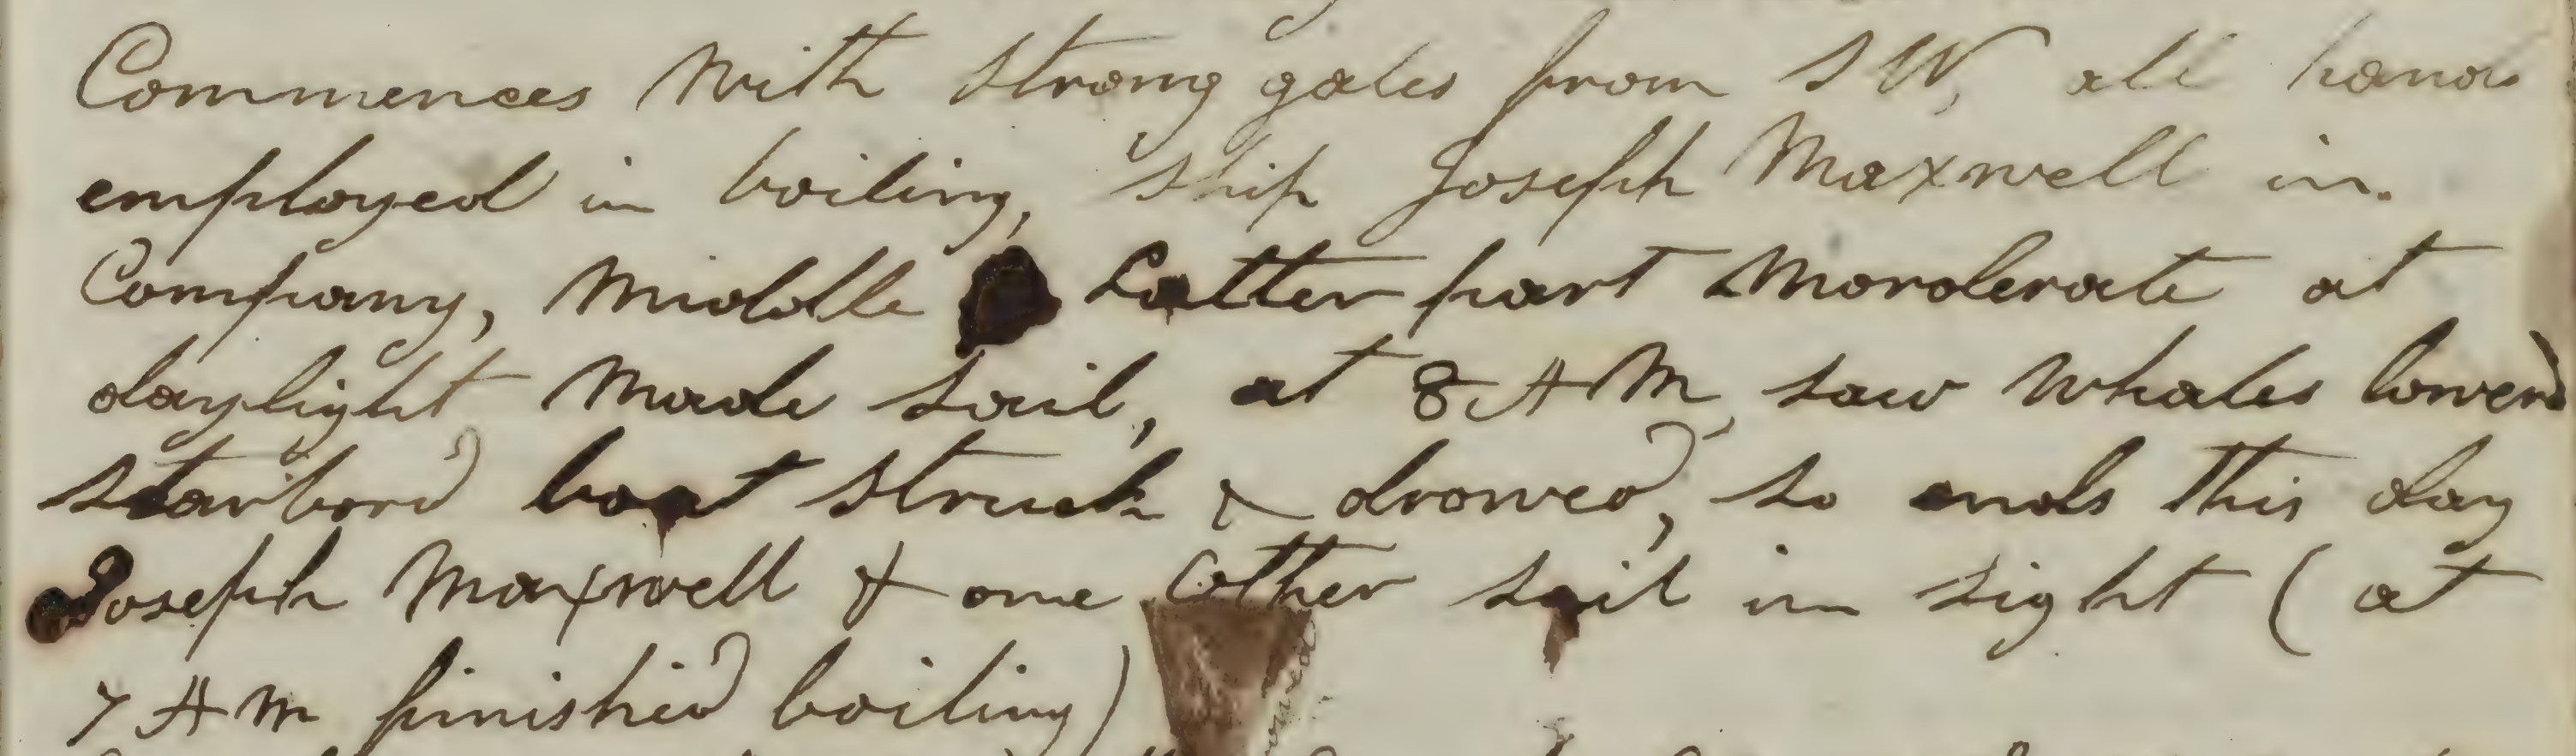 Commences With strong gales from S W, all hands
employed in boiling, ship Joseph Maxwell in
Company, Middle Latter part Morderate at
daylight Made sail, at 8 A M, saw Whales lowerd
starbord boat struck & drowed, so ends this day
Joseph Maxwell & one Other sail in sight ( at
7 A M finished boiling )